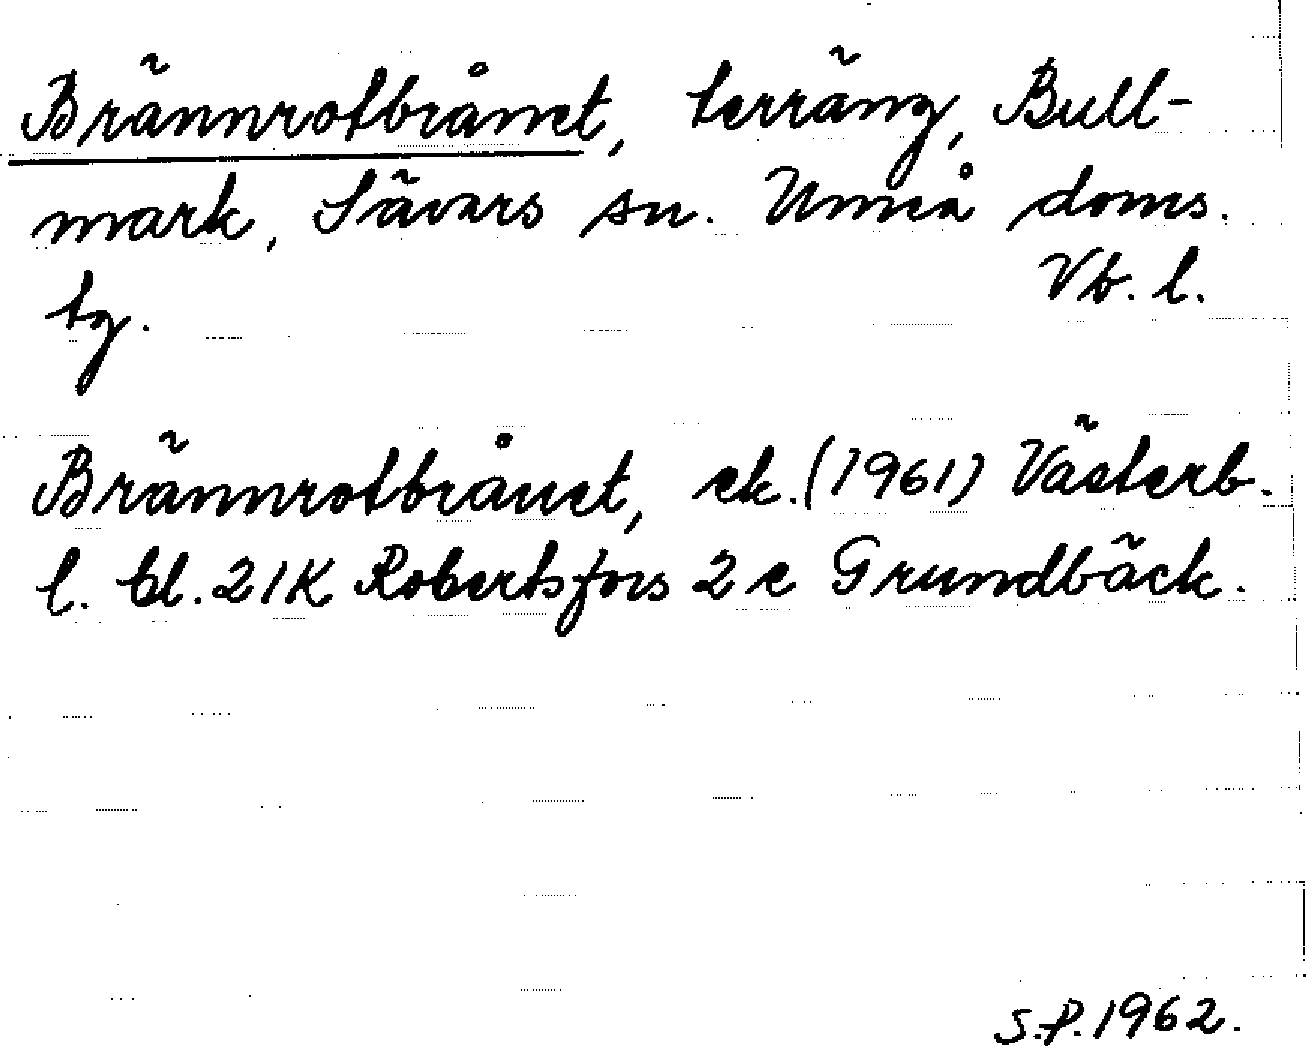 Brännrotbrånet, terräng, Bull-
mark, Sävars sn. Umeå doms.
tg. Vb. l.
Brännrotbrånet, ek. (1961) Västerb.
l. bl. 21K Robertsfors 2 e Grundbäck.
S.P. 1962.